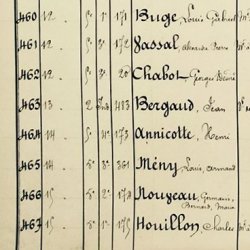 460 12 5° 1° 171 Buge, Louis Gabriel
461 12 5° 1° 172 Vassal, Alexandre Pierre
462 12 3° 20 Chabot, Georges Désiré
463 13 2 483 Bergaud, Jean
464 14 5° 4° 173 Annicotte, Remi
465 14 8° 3° 361 Mény, Louis, Armand
466 15 5° 2° 174 Nouveau, Germain, Bernard, Marie
467 15 5° 1° 175 Houillon, Charles